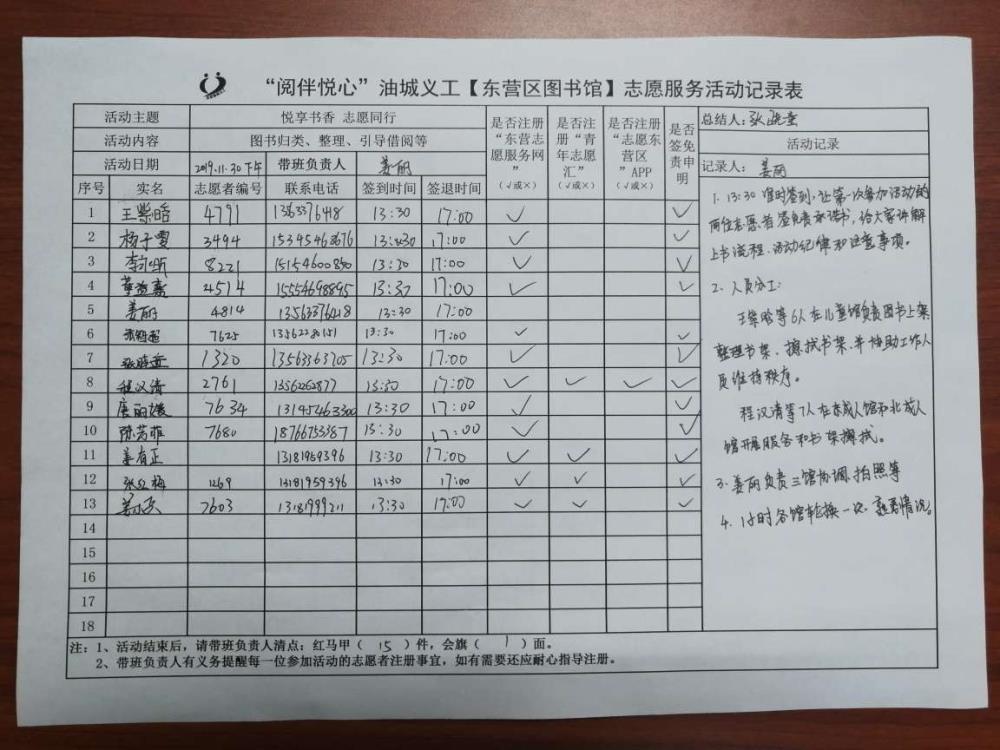 “阅伴悦心”油城义工【东营区图书馆】志愿服务活动记录表
活动主题 悦享书香 志愿同行 是否注册“东营志愿服务网”（√或×） 是否注册“青年志愿汇”（√或×） 是否注册“志愿东营区”APP（√或×） 是否签免责申明 总结人：张晓
活动内容 图书归类、整理、引导借阅等 活动记录
活动日期 2019.11.30下午 带班负责人 姜丽 记录人：姜丽
序号 实名 志愿者编号 联系电话 签到时间 签退时间
1 王紫晗 4791 13563376418 13:30 17:00 √ √
2 杨子雯 3494 15345463676 13:30 17:00 √ √
3 李 8221 15154600850 13:30 17:00 √ √
4 4514 15554698895 13:30 17:00 √ √
5 姜丽 4814 13563376418 13:30 17:00
6 7625 13562280151 13:30 17:00 √ √
7 1320 13563363705 13:30 17:00 √ √
8 程汉清 2761 13562262877 13:30 17:00 √ √ √ √
9 唐丽媛 7634 13145463300 13:30 17:00 √ √
10 陈芳菲 7680 18766753387 13:30 17:00 √ √
11 姜有正 13181959396 13:30 17:00 √ √ √
12 张立梅 1269 13181959396 13:30 17:00 √ √ √
13 7603 13181999211 13:30 17:00 √ √ √
14
15
16
17
18
1. 13:30 准时签到，让第一次参加活动的
两位志愿者签免责承诺书，给大家讲解
上书流程、活动纪律和注意事项。
2. 人员分工：
王紫晗等6人在儿童馆负责图书上架
整理书架、擦拭书架，并协助工作人
员维持秩序。
程汉清等7人在东成人馆和北成人
馆开展服务和书架擦拭。
3. 姜丽负责三馆协调、拍照等
4. 1小时各馆轮换一次，熟悉情况。
注：1、活动结束后，请带班负责人清点：红马甲（ 15 ）件，会旗（ 1 ）面。
2、带班负责人有义务提醒每一位参加活动的志愿者注册事宜，如有需要还应耐心指导注册。